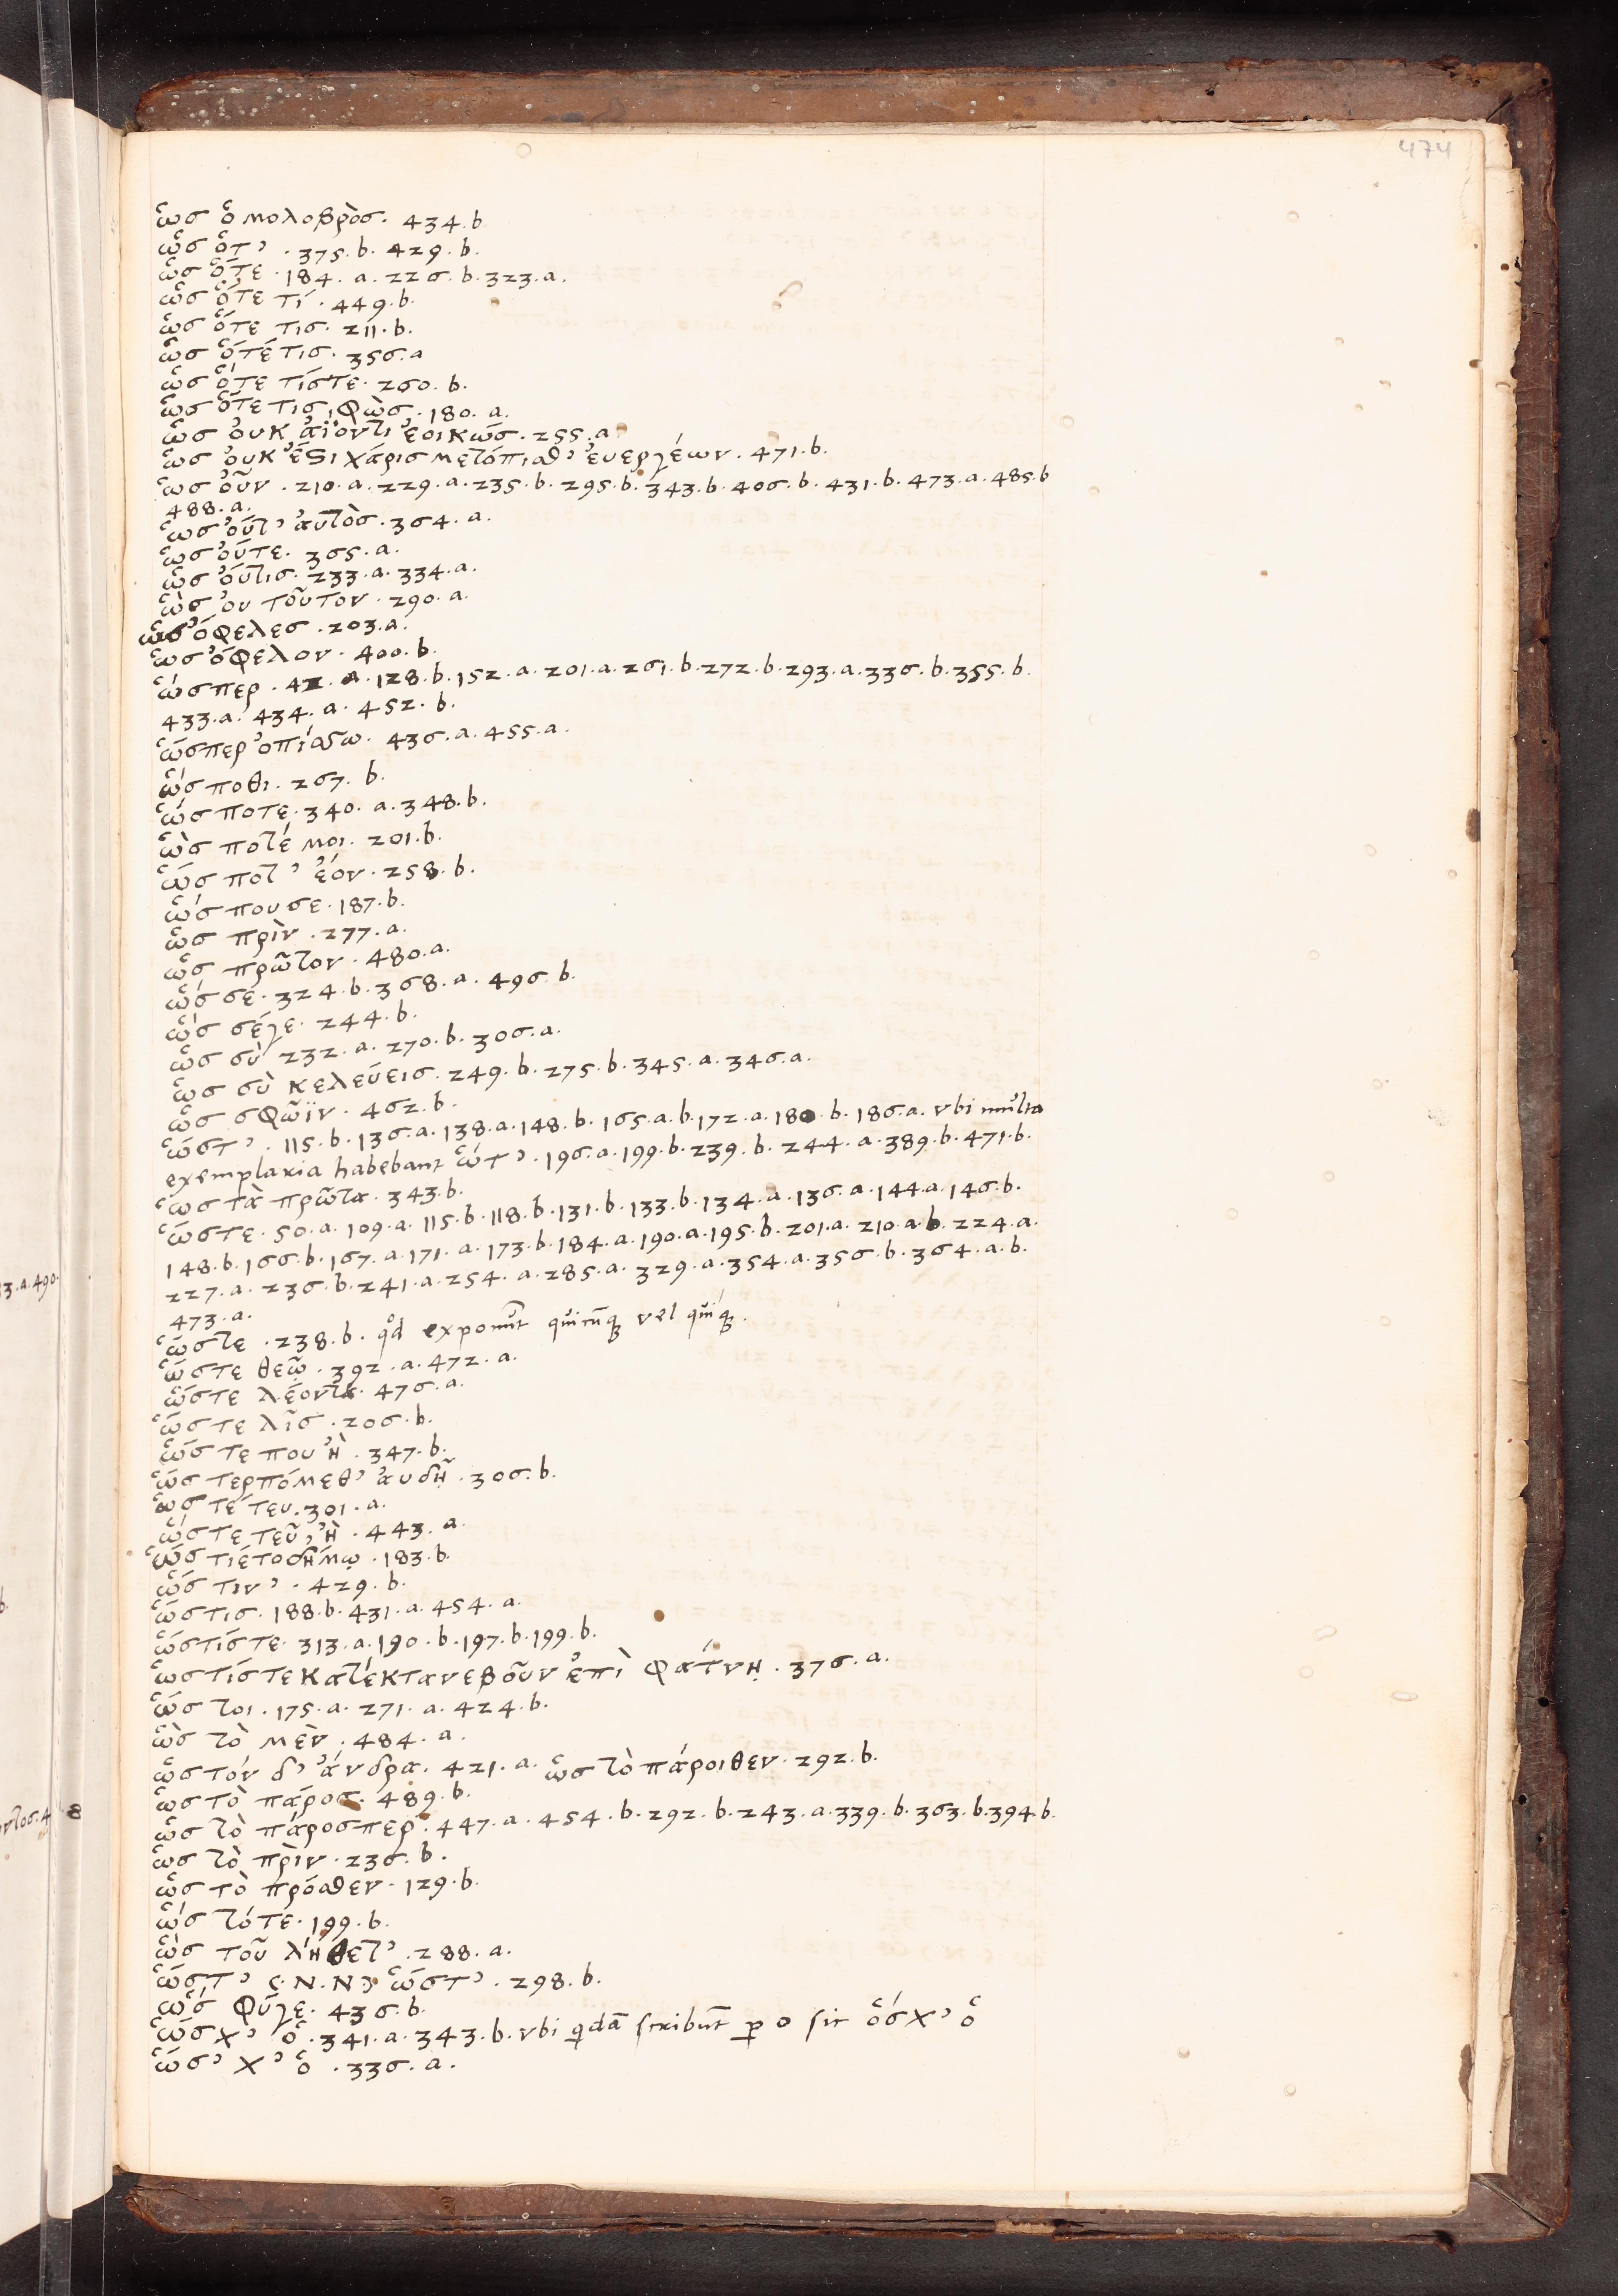 474
ὡσ ὁ μολοβρὸσ. 434.b
ὡσ ὅτ' . 375.b. 429.b.
ὡσ ὅτε . 184. a. 226. b. 323.a.
ὡσ ὅτε τί . 449.b.
ὡσ ὅτε τισ. 211.b.
ὡσ ὅτέ τισ. 356.a
ὡσ ὅτε τίστε. 260. b.
ὡσ ὅτε τισ, φὼσ . 180. a.
ὡσ ὀυκ ἀΐοντι ἐοικώσ . 255. a
ὡσ ὀυκ ἔστι χάρισ μετόπισθ' ἐυεργέων . 471.b.
ὡσ ὀῦν . 210.a. 229.a. 235.b. 295.b. 343.b. 406.b. 431.b. 473.a. 485.b
488.a.
ὡσ ὄυτ' ἀυτὸσ . 364. a.
ὡσ ὄυτε. 365.a.
ὡσ ὄυτισ. 233.a. 334.a.
ὡσ ὀυ τοῦτον . 290.a.
ὡσ ὄφελεσ . 203.a.
ὡσ ὄφελον . 400.b.
ὥσπερ . 42. a. 128.b. 152. a. 201. a. 261. b. 272. b. 293. a. 336. b. 355. b.
433.a. 434. a. 452. b.
ὥσπερ ὀπίσσω. 436.a. 455.a.
ὥσ ποθι. 267. b.
ὥσ ποτε. 340. a. 348.b.
ὥσ ποτέ μοι. 201.b.
ὥσ ποτ' ἐόν. 258. b.
ὥσ που σε . 187.b.
ὡσ πρὶν . 277. a.
ὡσ πρῶτον . 480.a.
ὥσ σέ. 324. b. 368. a. 496. b.
ὥσ σέγε. 244. b.
ὡσ σὺ 232. a. 270. b. 306.a.
ὡσ σὺ κελεύεισ. 249. b. 275. b. 345. a. 346. a.
ὡσ σφῶϊν . 462. b.
ὥστ' . 115.b. 136.a. 138.a. 148. b. 165. a.b. 172. a. 180. b. 186.a. vbi multa
exemplaria habebant ὥτ' . 196.a. 199.b. 239. b. 244. a. 389. b. 471.b.
ὡσ τὰ πρῶτα. 343.b.
ὥστε. 50.a. 109.a. 115.b. 118.b. 131.b. 133.b. 134.a. 136.a. 144.a. 146.b.
148.b. 166.b. 167. a. 171. a. 173.b. 184.a. 190.a. 195.b. 201.a. 210.a.b. 224.a.
227.a. 236.b. 241.a. 254. a. 285.a. 329. a. 354. a. 356.b. 364. a.b.
473.a.
ὥστε . 238.b. qd̊ exponūt quicūq̢ vel quiq̢.
ὥστε θεῶ. 392. a. 472. a.
ὥστε λέοντα. 476.a.
ὥστε λῖσ . 206.b.
ὥστε που ἢ . 347.b.
ὥσ τερπόμεθ' ἀυδῆ . 306.b.
ὥσ τέ τευ. 301. a.
ὥστε τεῦ, ἢ . 443. a.
ὥσ τιέτο δήμῳ . 183.b.
ὥσ τιν' . 429. b.
ὥστισ. 188.b. 431. a. 454. a.
ὥστίστε. 313. a. 190. b. 197.b. 199.b.
ὥστίστε κατέκτανε βοῦν ἐπὶ φάτνῃ . 376. a.
ὥσ τοι. 175. a. 271. a. 424. b.
ὡσ τὸ μὲν . 484. a.
ὡσ τόν δ' ἄνδρα. 421. a. ὡσ τὸ πάροιθεν. 292. b.
ὡσ τὸ πάροσ. 489. b.
ὡσ τὸ πάροσπερ . 447. a. 454. b. 292. b. 243. a. 339. b. 363. b. 394.b.
ὡσ τὸ πρὶν . 236. b.
ὡσ τὸ πρόσθεν. 129. b.
ὥσ τότε. 199. b.
ὡσ τοῦ λήθετ' . 288. a.
ὥστ' ς. Ν. Ν ὥστ' . 298. b.
ὥσ φύγε. 436.b.
ὥσ χ' ὁ . 341. a. 343. b. vbi q̄dā scribūt p o sic ὅσχ' ὁ
ὥσ' χ' ὁ . 336. a.